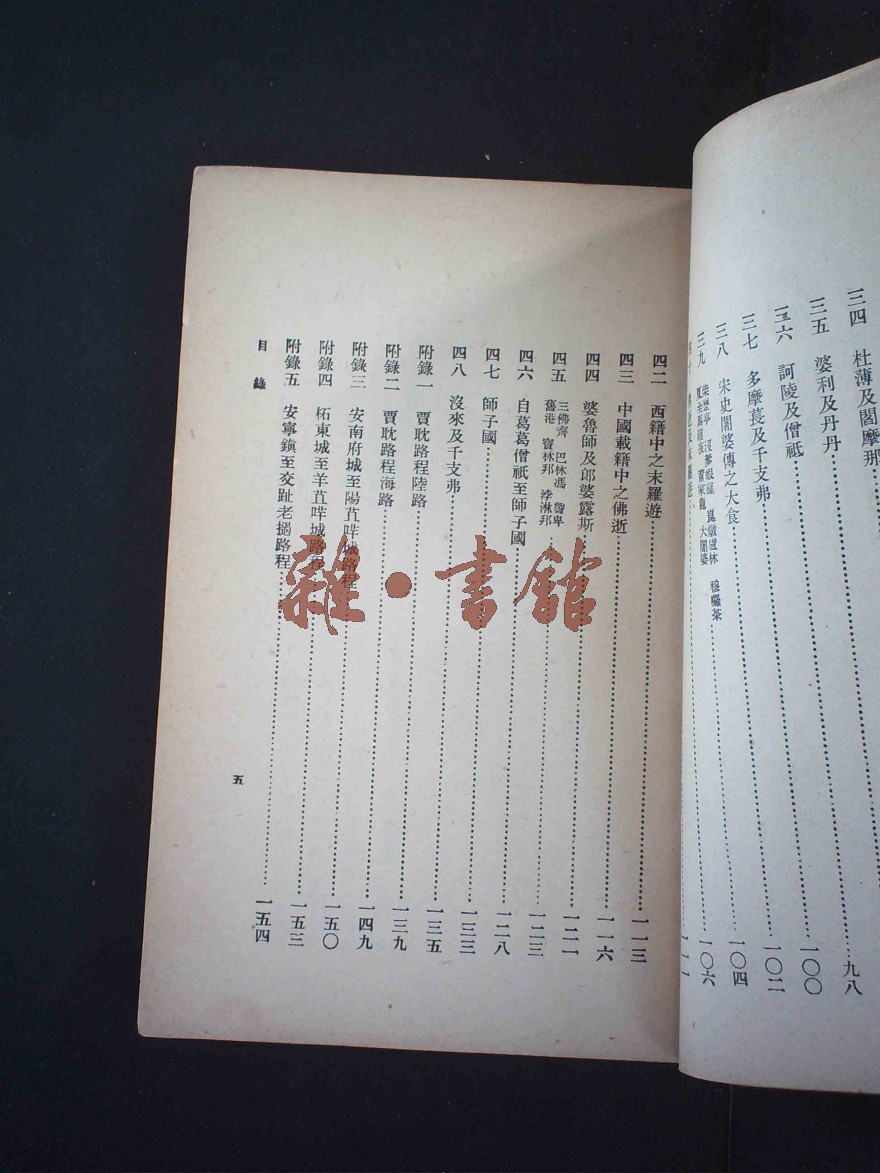 三四 杜薄及閣摩那……九八
三五 婆利及丹丹……一〇〇
三六 訶陵及僧祇……一〇二
三七 多摩萇及千支弗……一〇四
三八 宋史闍婆傳之大食……一〇六
三九
大闍婆
穆囉茶
四二 西籍中之末羅遊……一一三
四三 中國載籍中之佛逝……一一六
四四 婆魯師及郎婆露斯……一二一
四五 三佛齊 巴林馮 詹卑
舊港 寶林邦 浡淋邦……一二三
四六 自葛葛僧祇至師子國……一二八
四七 師子國……一三三
四八 沒來及千支弗……一三五
附錄一 賈耽路程陸路……一三九
附錄二 賈耽路程海路……一四九
附錄三 安南府城至陽苴哶城路程……一五〇
附錄四 柘東城至羊苴哶城路程……一五三
附錄五 安寧鎮至交趾老撾路程……一五四
目錄
五
雜·書館